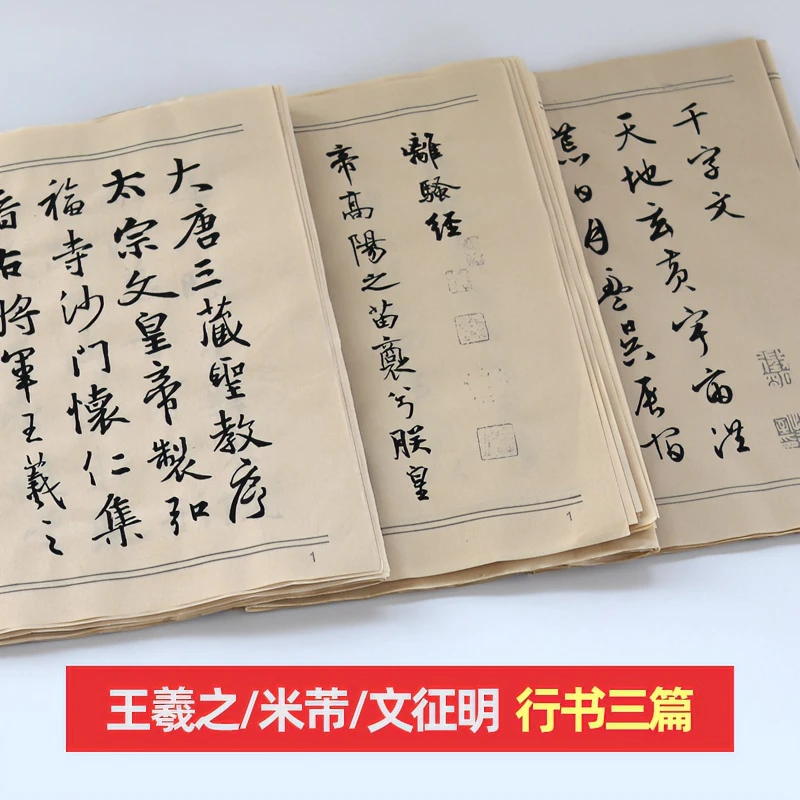 大唐三藏聖教序
太宗文皇帝製弘
福寺沙门懷仁集
晉右將軍王羲之
1
離騷经
帝高陽之苗裔兮朕皇
1
千字文
天地玄黄宇宙洪
荒日月盈昃辰宿
王羲之/米芾/文征明 行书三篇